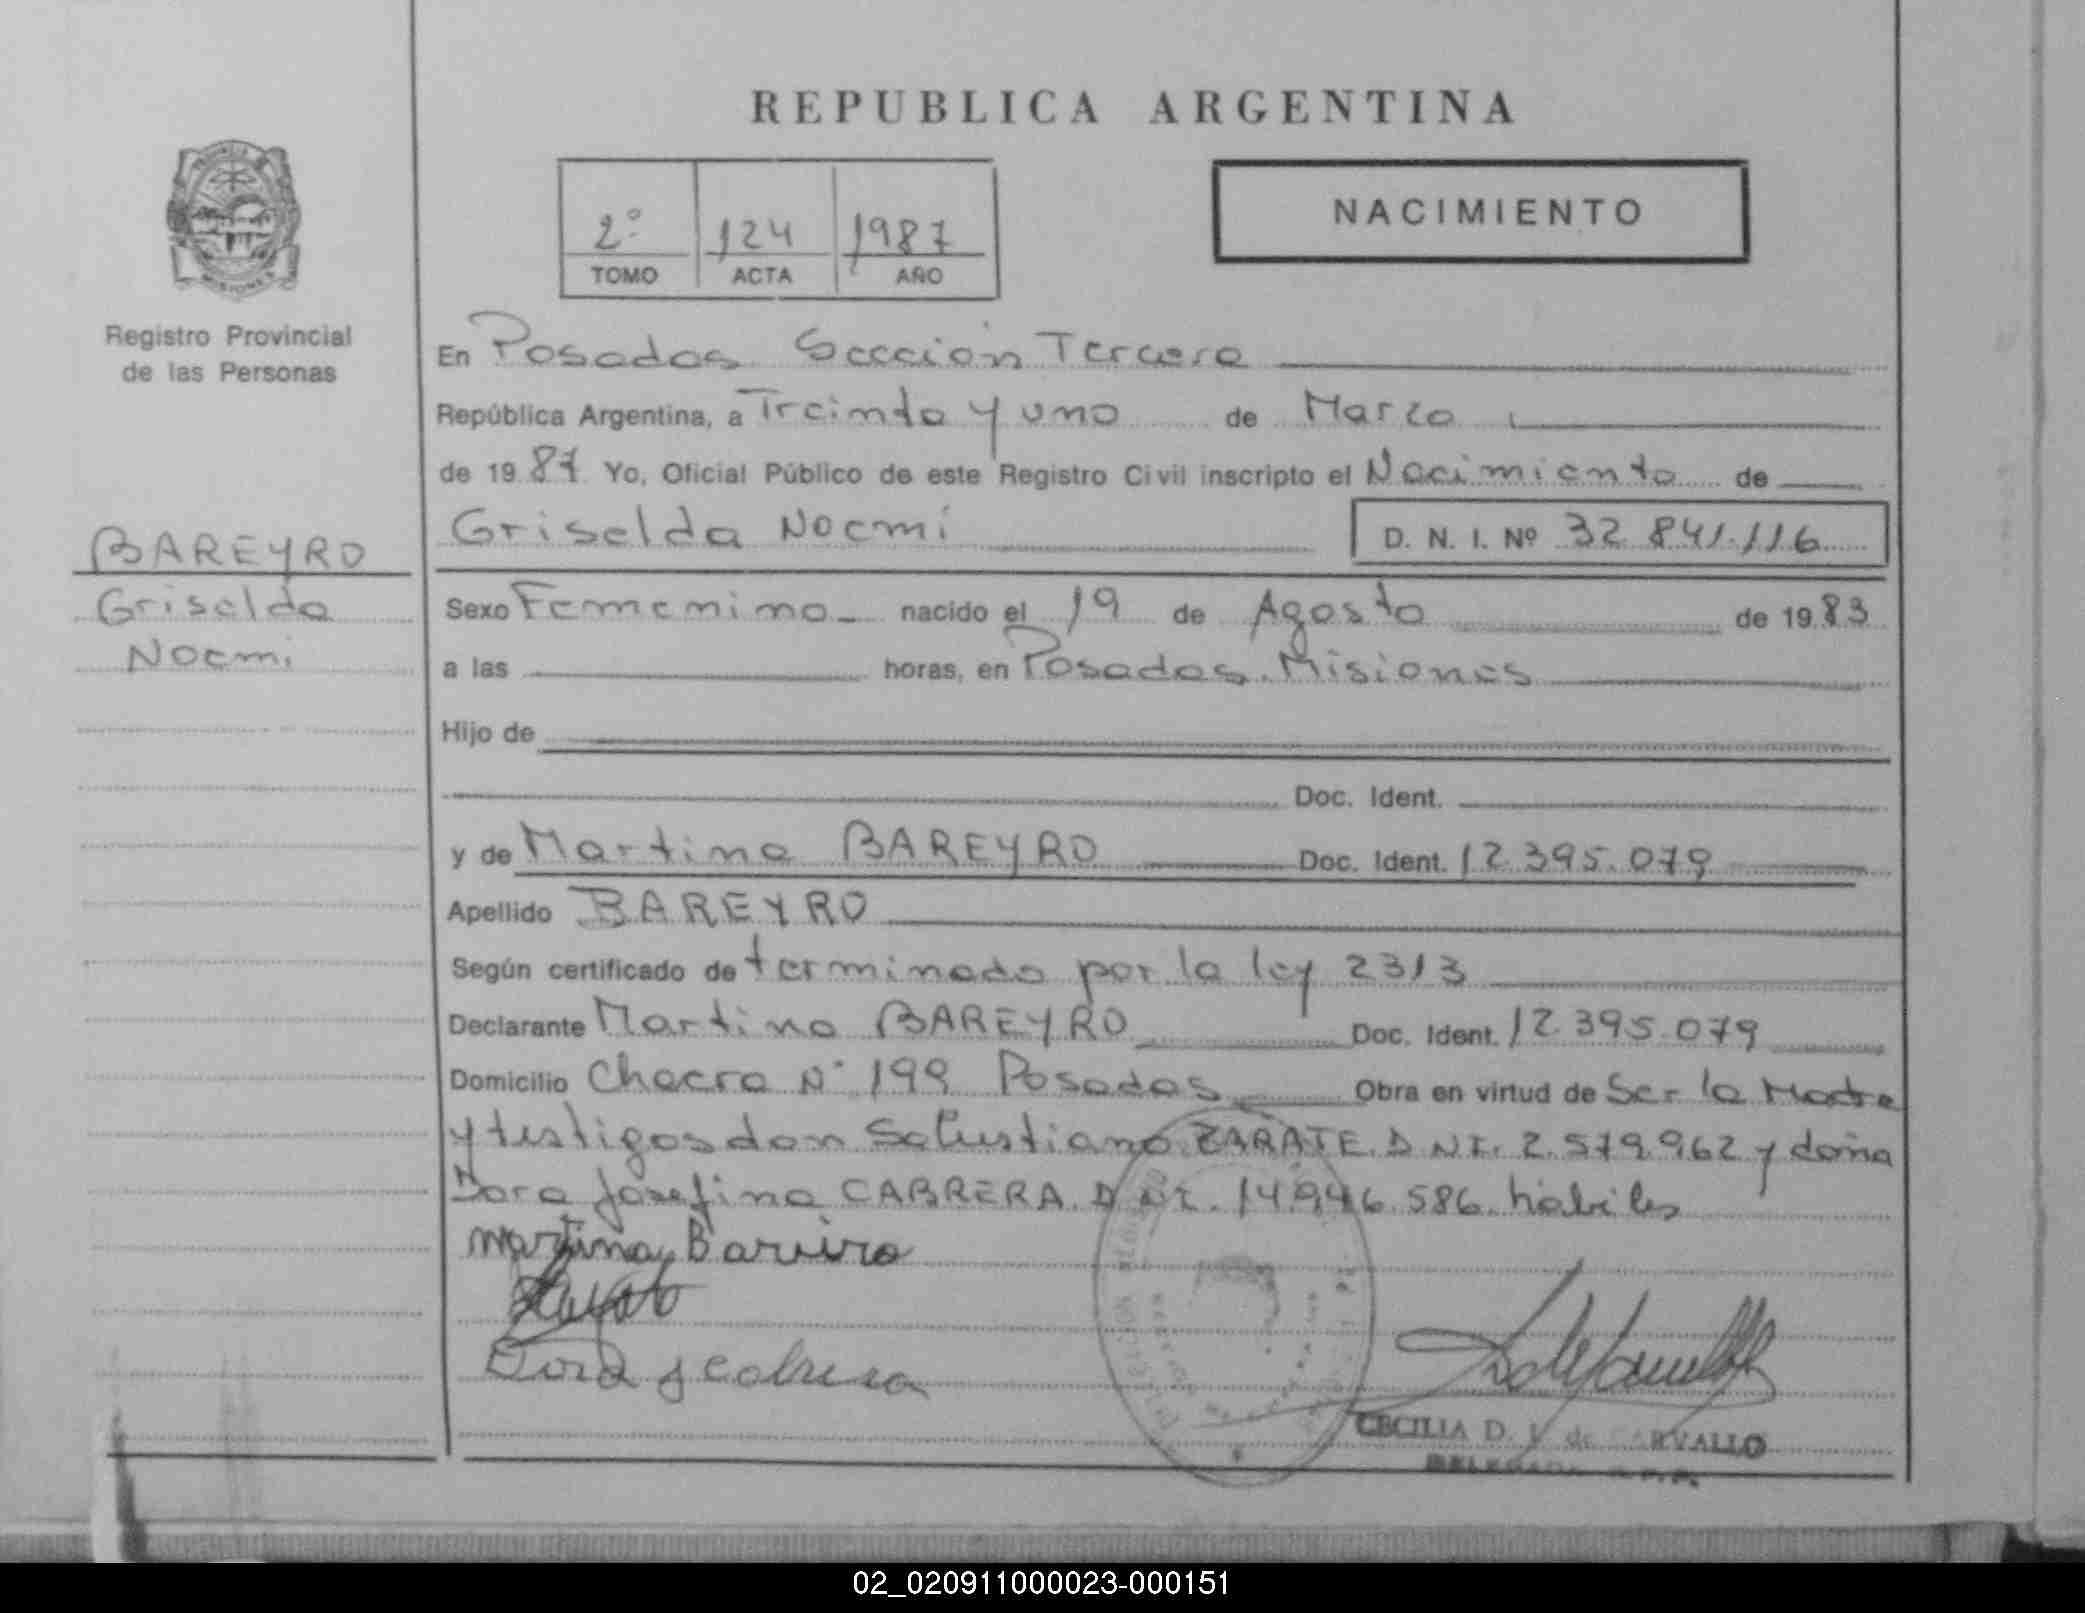 REPUBLICA ARGENTINA
PROVINCIA DE
MISIONES
Registro Provincial
de las Personas
2º 124 1987
TOMO ACTA AÑO
NACIMIENTO
En Posadas Sección Tercera
República Argentina, a Treinta y uno de Marzo
de 1987 Yo, Oficial Público de este Registro Civil inscripto el Nacimiento de
Griselda Noemí D. N. I. Nº 32.841.116
BAREYRO
Griselda
Noemi
Sexo Femenino nacido el 19 de Agosto de 1983
a las horas, en Posadas. Misiones
Hijo de
Doc. Ident.
y de Martina BAREYRO Doc. Ident. 12.395.079
Apellido BAREYRO
Según certificado de terminado por la ley 2313
Declarante Martina BAREYRO Doc. Ident. 12.395.079
Domicilio Chacra Nº 199 Posadas Obra en virtud de Ser la Madre
y testigos don Salustiano ZARATE. D.N.I. 2.579.962 y doña
Dora Josefina CABRERA. D.N.I. 14.946.586. hábiles
Martina Bareiro
Dora J Cabrera
CECILIA D. de CARVALLO
DELEGADA R.P.P.
02_020911000023-000151